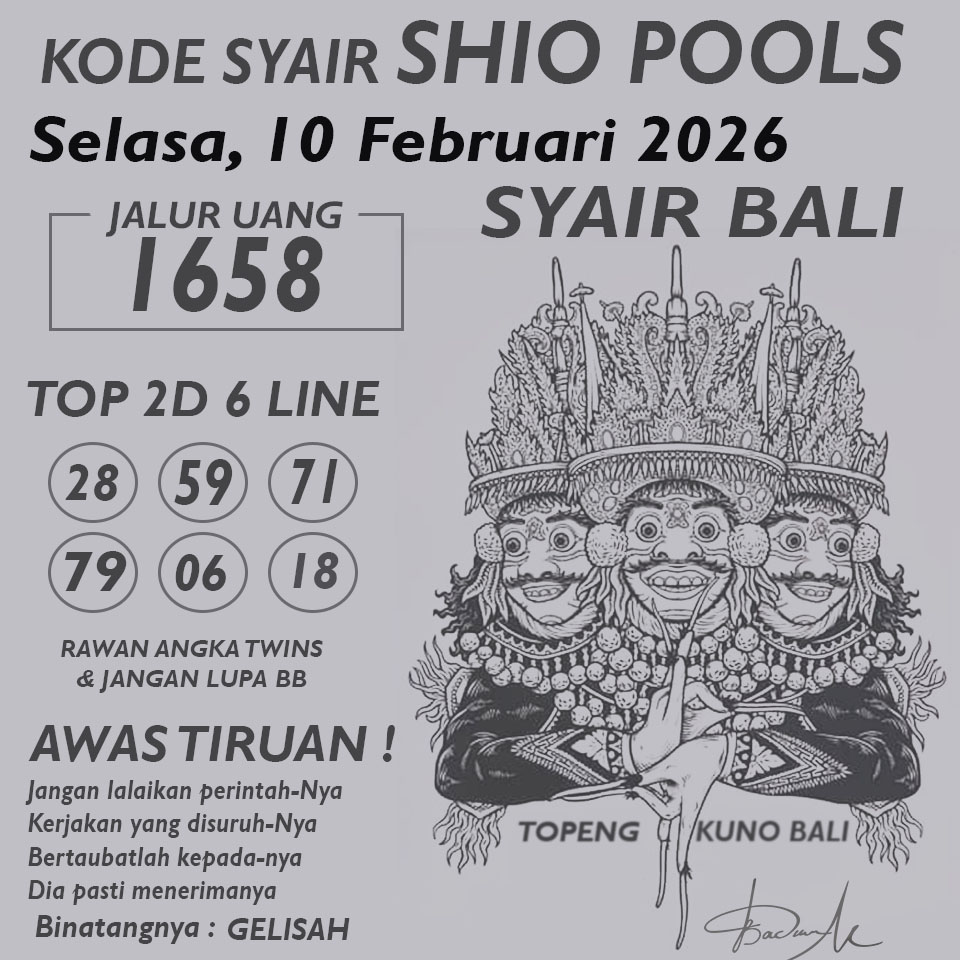 KODE SYAIR SHIO POOLS
Selasa, 10 Februari 2026
SYAIR BALI
JALUR UANG
1658
TOP 2D 6 LINE
28 59 71
79 06 18
RAWAN ANGKA TWINS
& JANGAN LUPA BB
AWAS TIRUAN !
Jangan lalaikan perintah-Nya
Kerjakan yang disuruh-Nya
Bertaubatlah kepada-nya
Dia pasti menerimanya
Binatangnya : GELISAH
TOPENG KUNO BALI